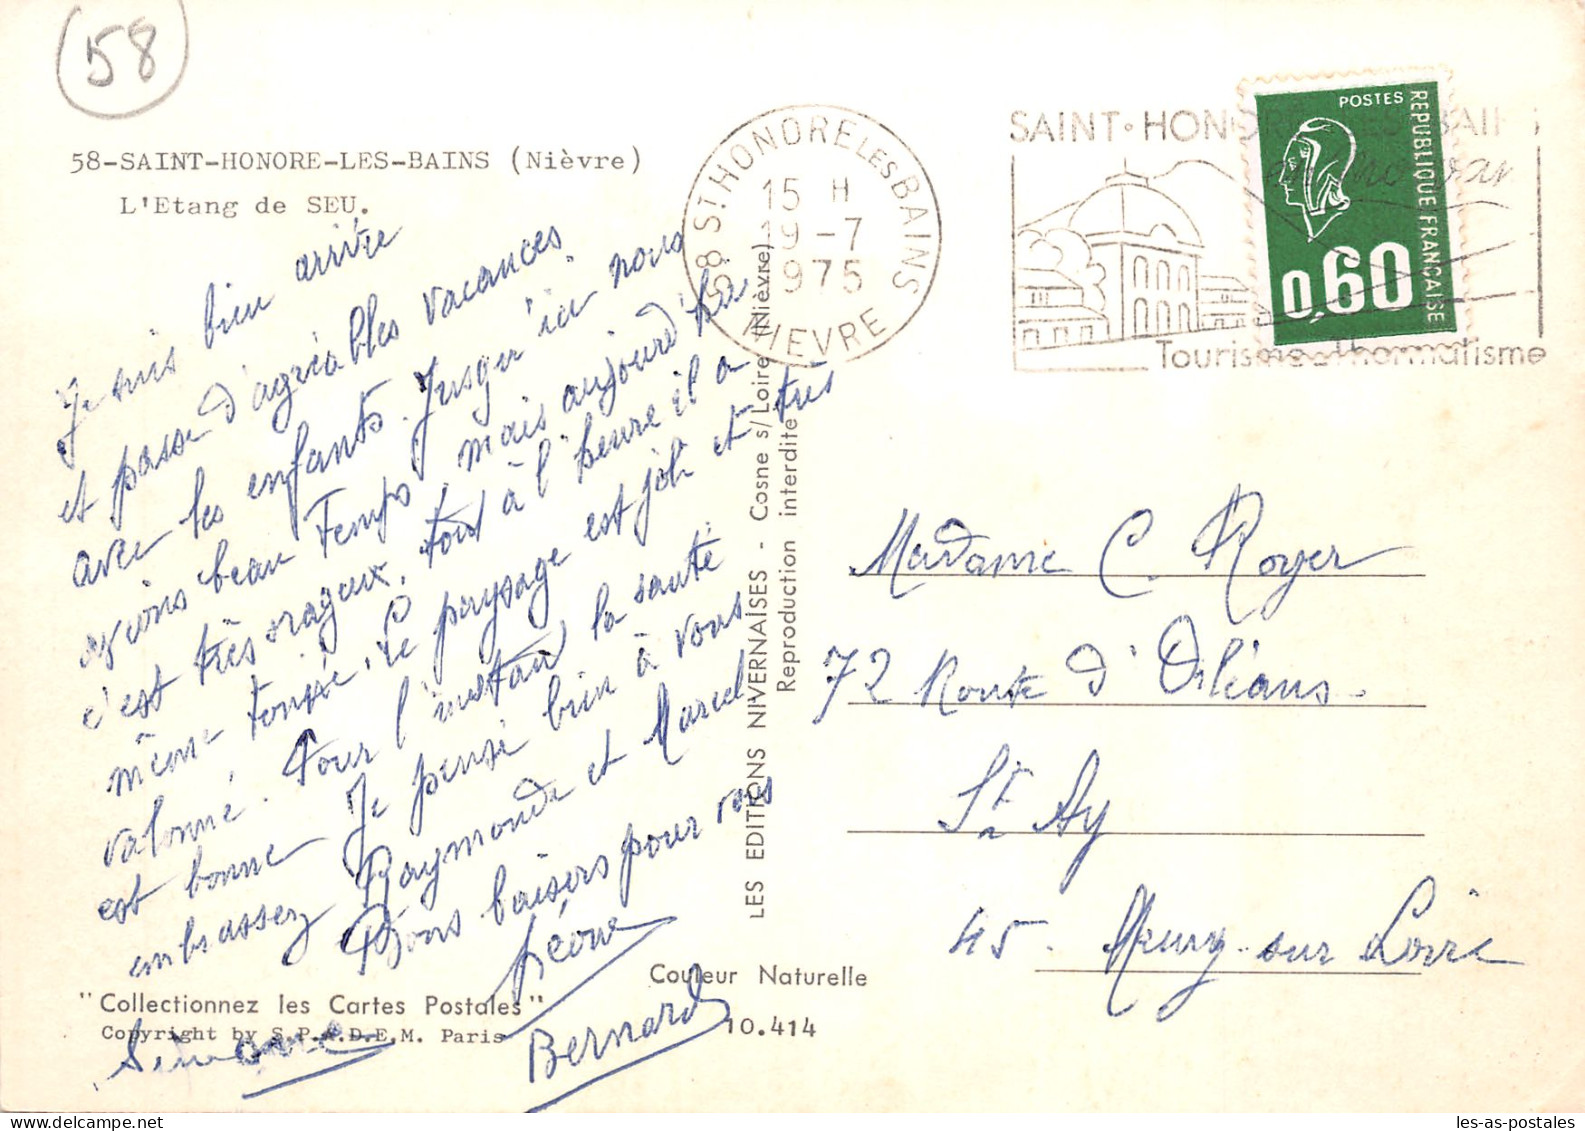 58
58-SAINT-HONORE-LES-BAINS (Nièvre)
L'Etang de SEU.
58 ST HONORE LES BAINS
15 H
19-7
1975
NIEVRE
SAINT·HONORE LES BAINS
en morvan
Tourisme-Thermalisme
POSTES
REPUBLIQUE FRANÇAISE
0,60
Je suis bien arrivée
et passe d'agréables vacances
avec les enfants. Jusqu'ici nous
avions beau Temps, mais aujourd'hui
c'est très orageux, tout à l'heure il a
même tonné. Le paysage est joli et très
valonné. Pour l'instant la santé
est bonne Je pense bien à vous
embrassez Raymonde et Marcel
Bons baisers pour vous
Léone
Simone
Bernard
LES EDITIONS NIVERNAISES - Cosne s/Loire (Nièvre)
Reproduction interdite
Madame C. Royer
72 Route d'Orléans.
St Ay
45. Meung-sur Loire
"Collectionnez les Cartes Postales"
Copyright by S.P.A.D.E.M. Paris
Couleur Naturelle
10.414
les-as-postales